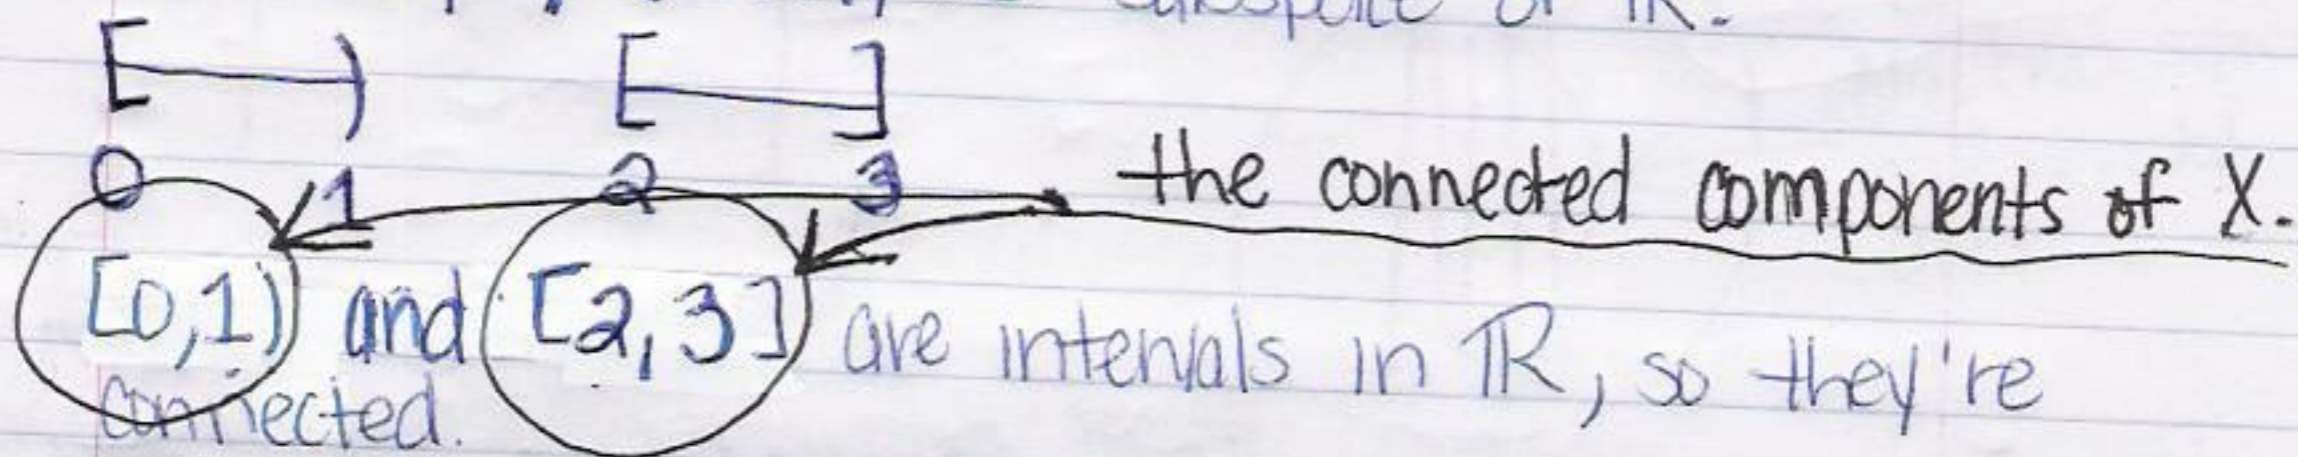 subspace of ℝ.
[ ) [ ]
0 1 2 3 the connected components of X.
[0,1) and [2,3] are intervals in ℝ, so they're
connected.